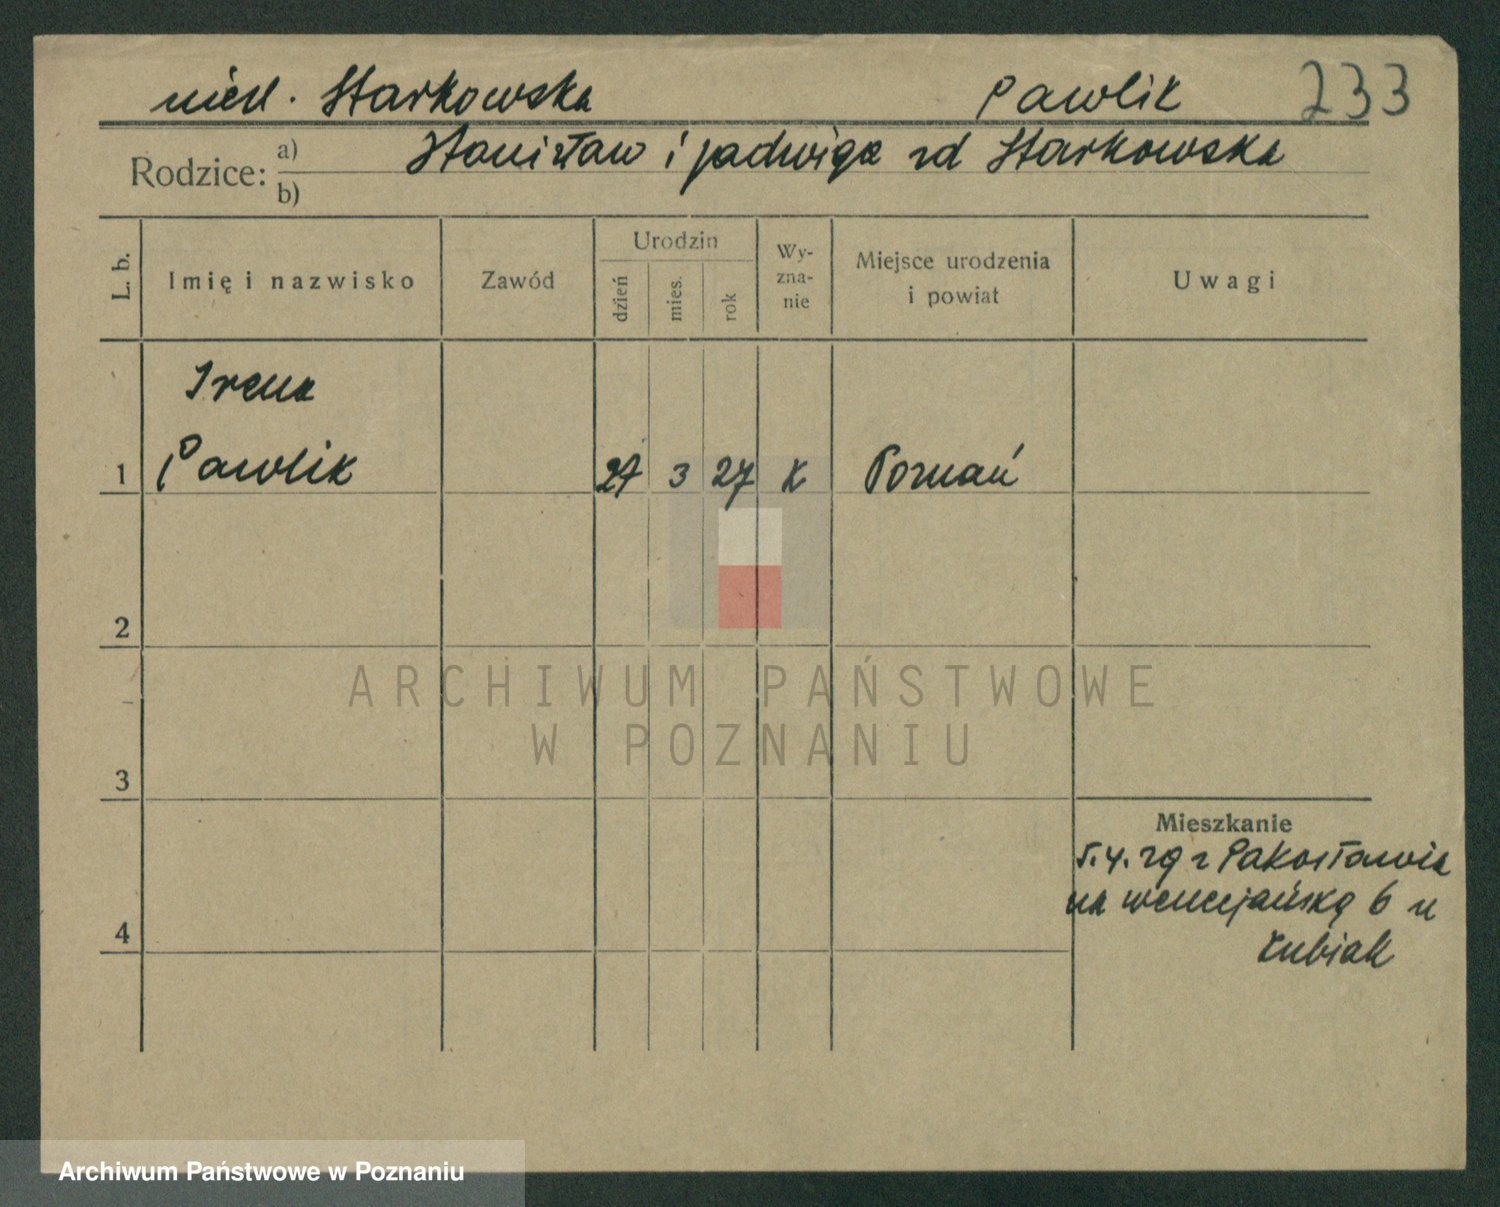 nied. Starkowska Pawlik 233
Rodzice: a) Stanisław i Jadwiga zd Starkowska
b)
L. b. Imię i nazwisko Zawód Urodzin dzień mies. rok Wy-zna-nie Miejsce urodzenia i powiat Uwagi
Irena
1 Pawlik 27 3 27 k Poznań
2
3
Mieszkanie
5.4.29 z Pakosławia
na wenecjańską 6 u
4
Łubiak
ARCHIWUM PAŃSTWOWE
W POZNANIU
Archiwum Państwowe w Poznaniu